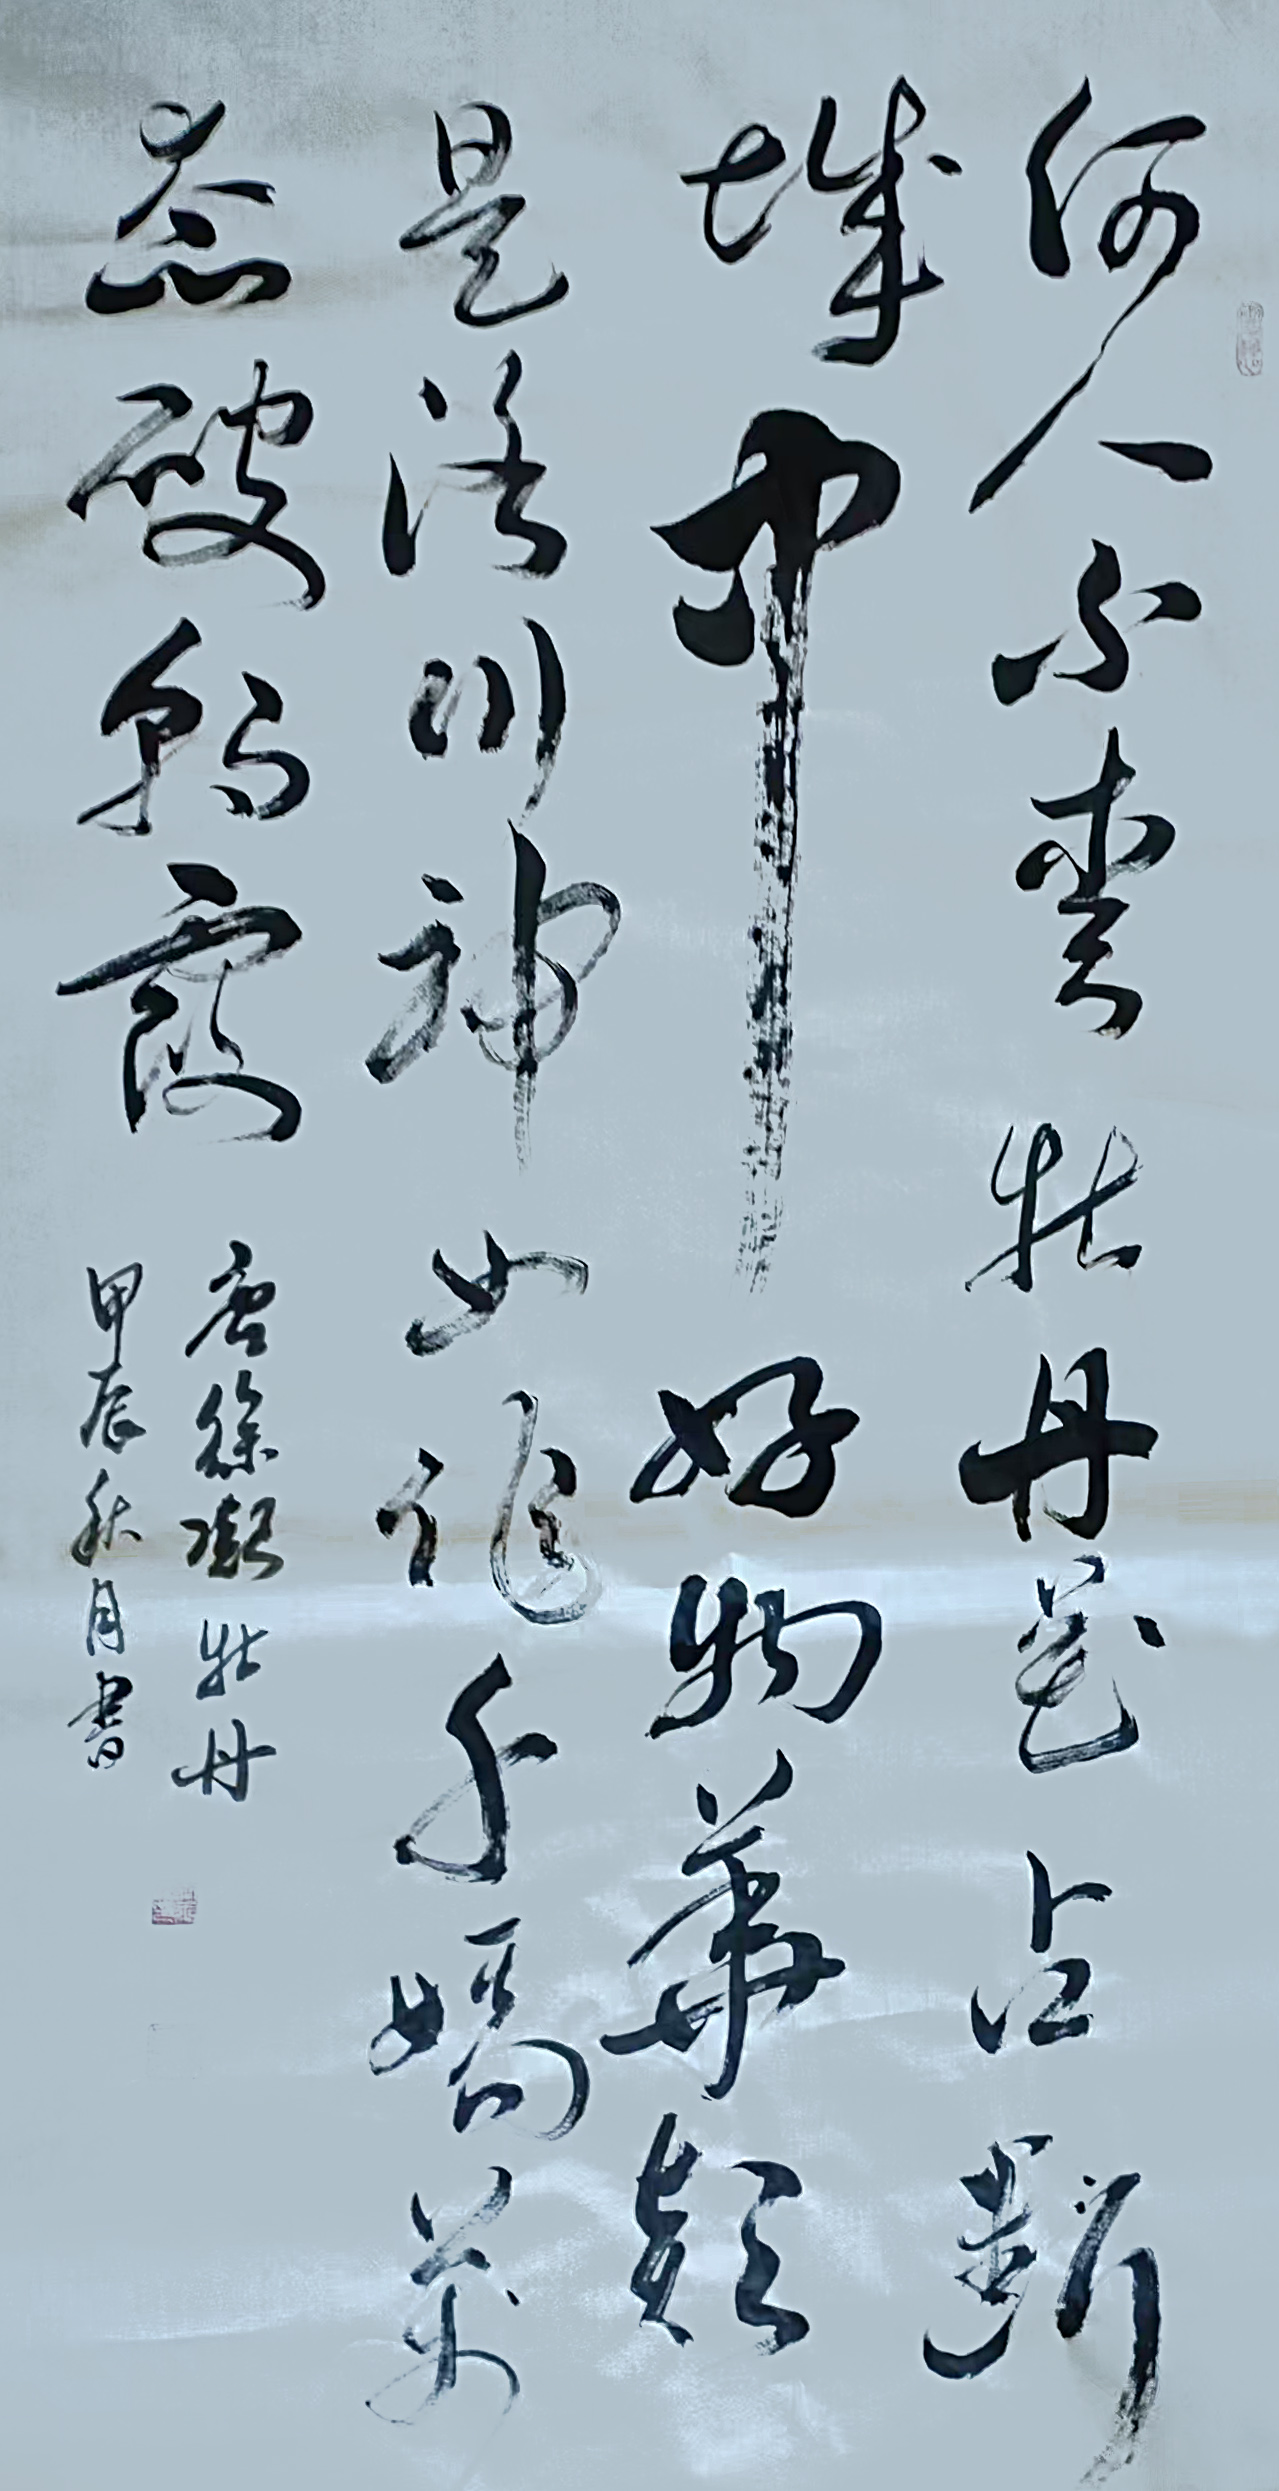 何人不愛牡丹花占斷
城中好物華疑
是洛川神女作千嬌萬
態破朝霞
唐徐凝牡丹
甲辰秋月書